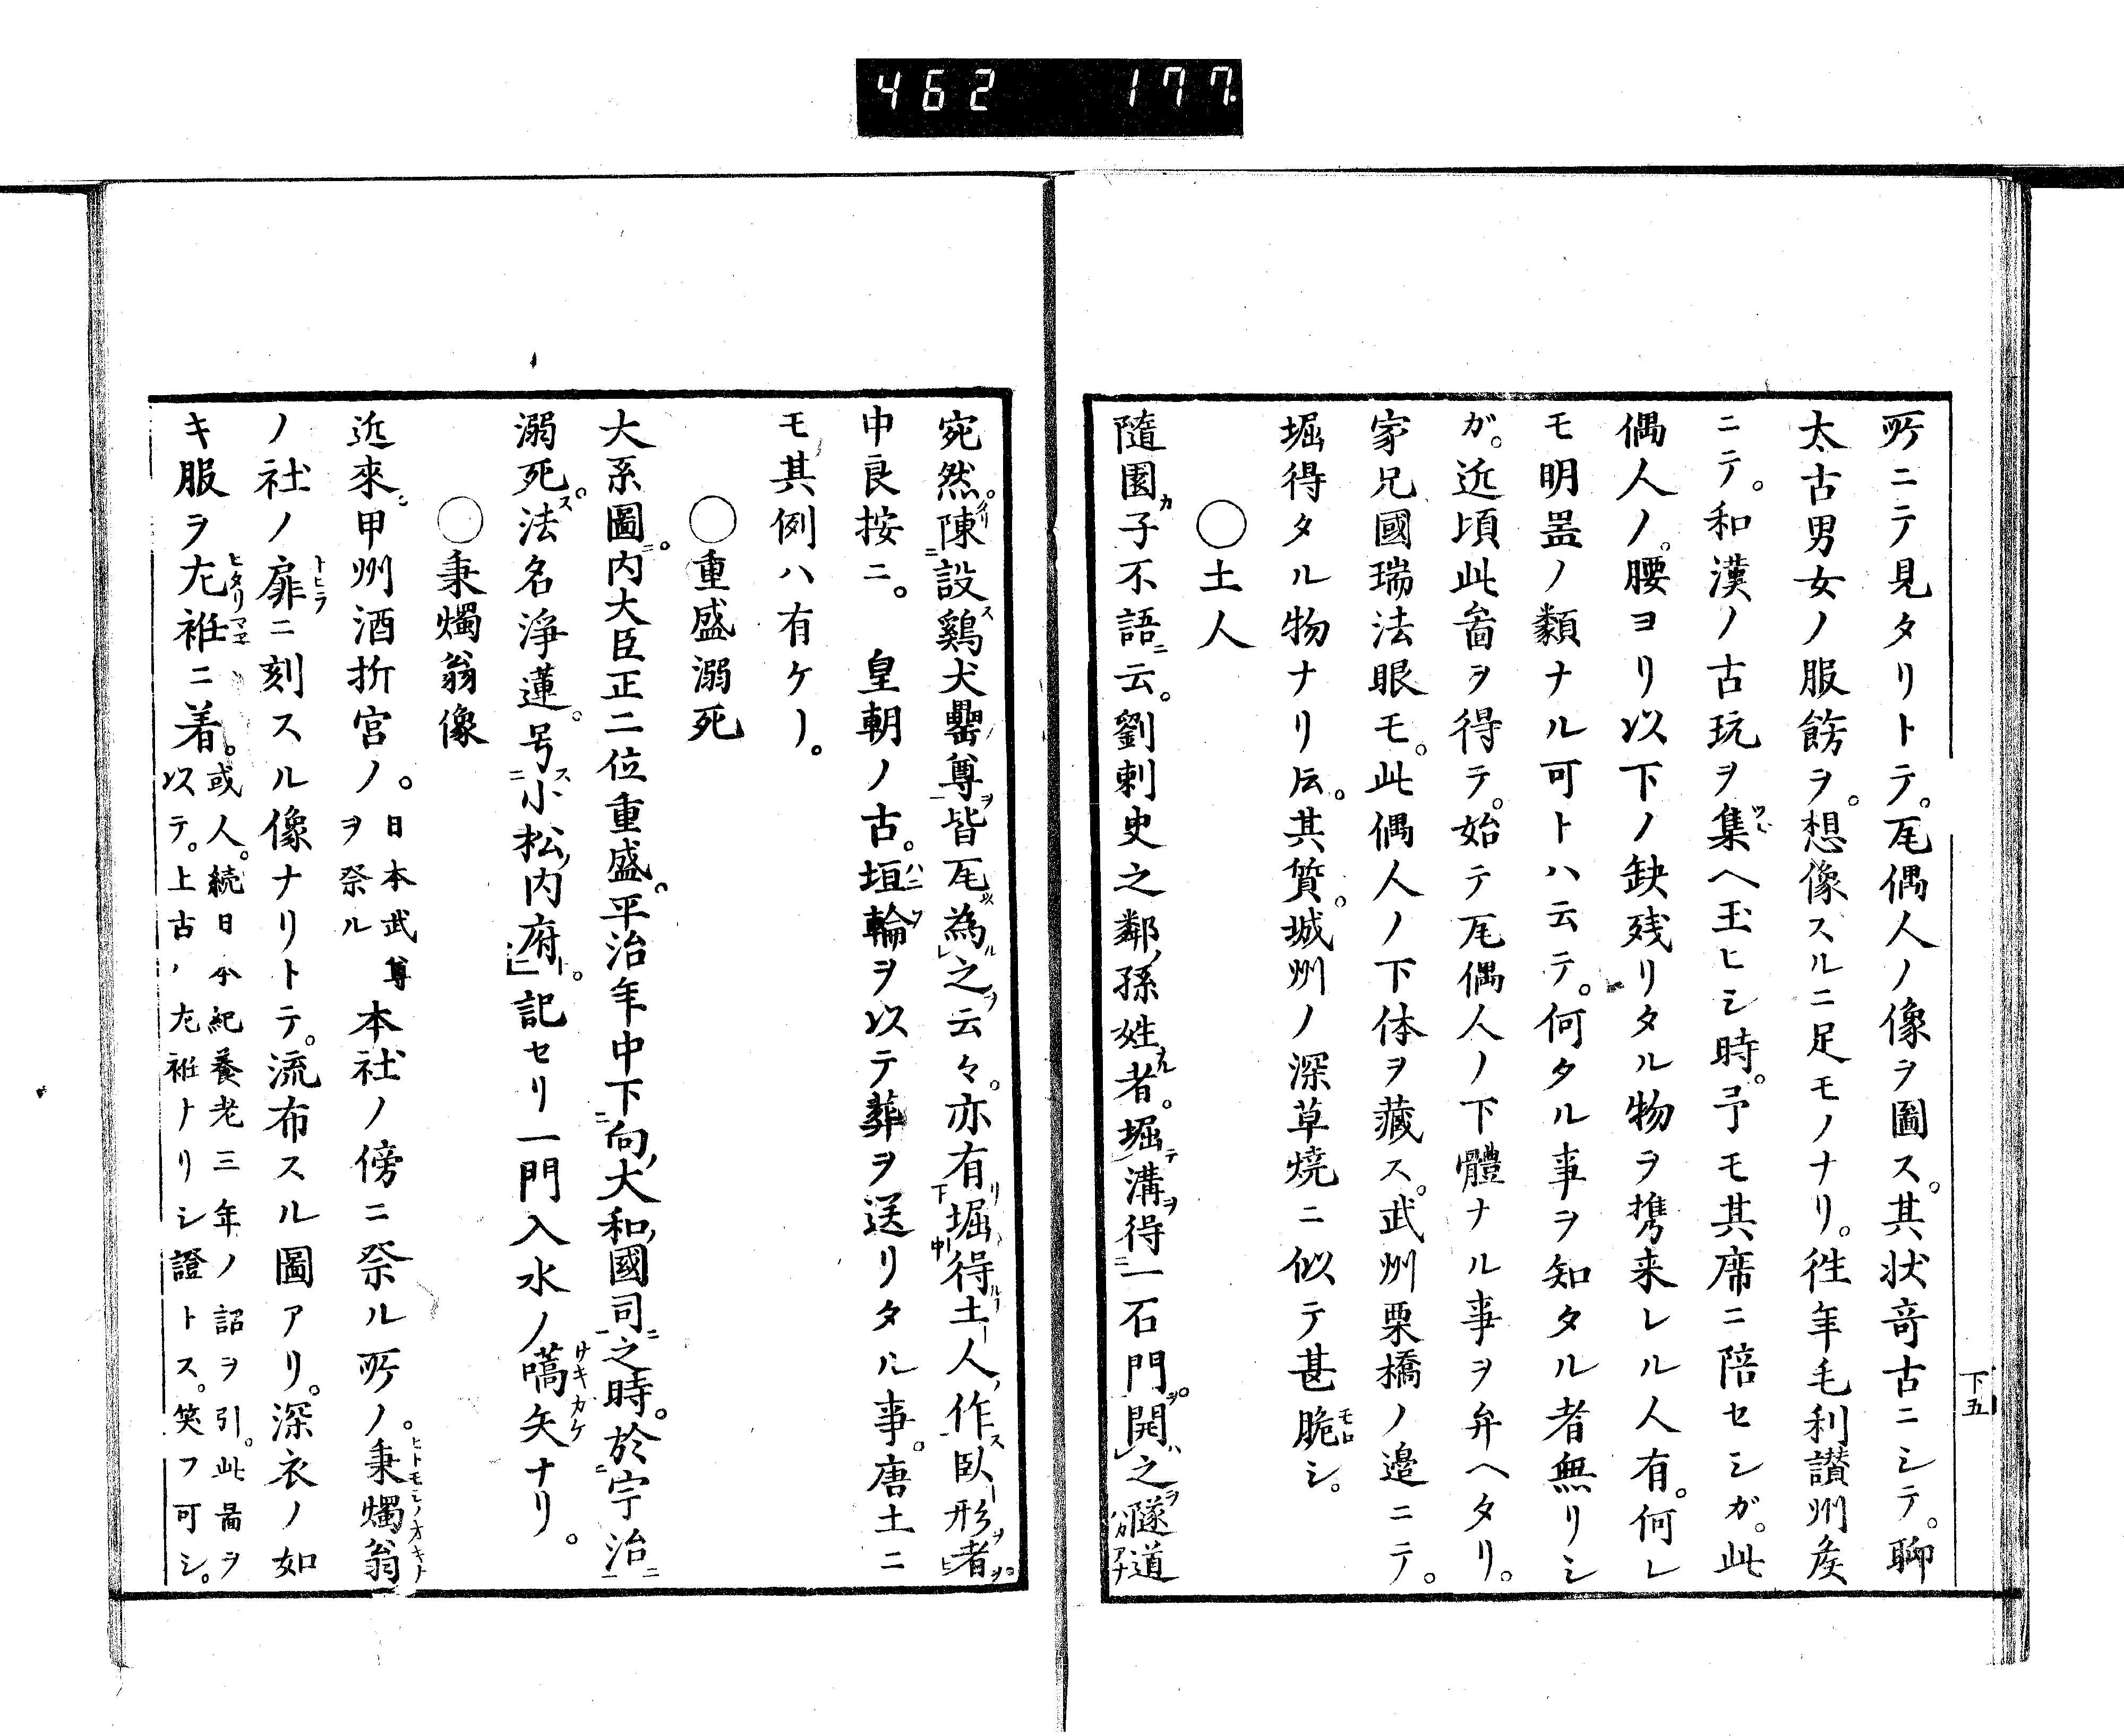 462 177.
下五
所ニテ見タリトテ。瓦偶人ノ像ヲ圖ス。其状奇古ニシテ。聊
太古男女ノ服餝ヲ。想像スルニ足モノナリ。徃年毛利讃州矦
ニテ。和漢ノ古玩ヲ集ヘ玉ヒシ時。予モ其席ニ陪セシガ。此
偶人ノ。腰ヨリ以下ノ缺残リタル物ヲ携来レル人有。何レ
モ明噐ノ類ナル可トハ云テ。何タル事ヲ知タル者無リシ
ガ。近頃此畨ヲ得テ。始テ瓦偶人ノ下體ナル事ヲ弁ヘタリ。
家兄國瑞法眼モ。此偶人ノ下体ヲ藏ス。武州栗橋ノ邉ニテ。
堀得タル物ナリ𪜈。其質。城州ノ深草燒ニ似テ甚脆シ。
〇土人
隨園子不語云。劉剌史之鄰孫姓者。堀溝得一石門。開之隧道
宛然。陳設鷄犬罍尊。皆瓦為之云々。亦有堀得土人作臥形者。
中良按ニ。 皇朝ノ古。垣輪ヲ以テ葬ヲ送リタル事。唐土ニ
モ其例ハ有ケー。
〇重盛溺死
大系圖。内大臣正二位重盛。平治年中下向大和國司之時。於宇治
溺死。法名淨蓮。号小松内府。記セリ一門入水ノ嚆矢ナリ。
〇秉燭翁像
近來甲州酒折宮ノ。日本武尊ヲ祭ル本社ノ傍ニ祭ル所ノ。秉燭翁
ノ社ノ扉ニ刻スル像ナリトテ。流布スル圖アリ。深衣ノ如
キ服ヲ左袵ニ着。或人。続日本紀養老三年ノ詔ヲ引。此畐ヲ
以テ。上古ノ左袵ナリシ證トス。笑フ可シ。